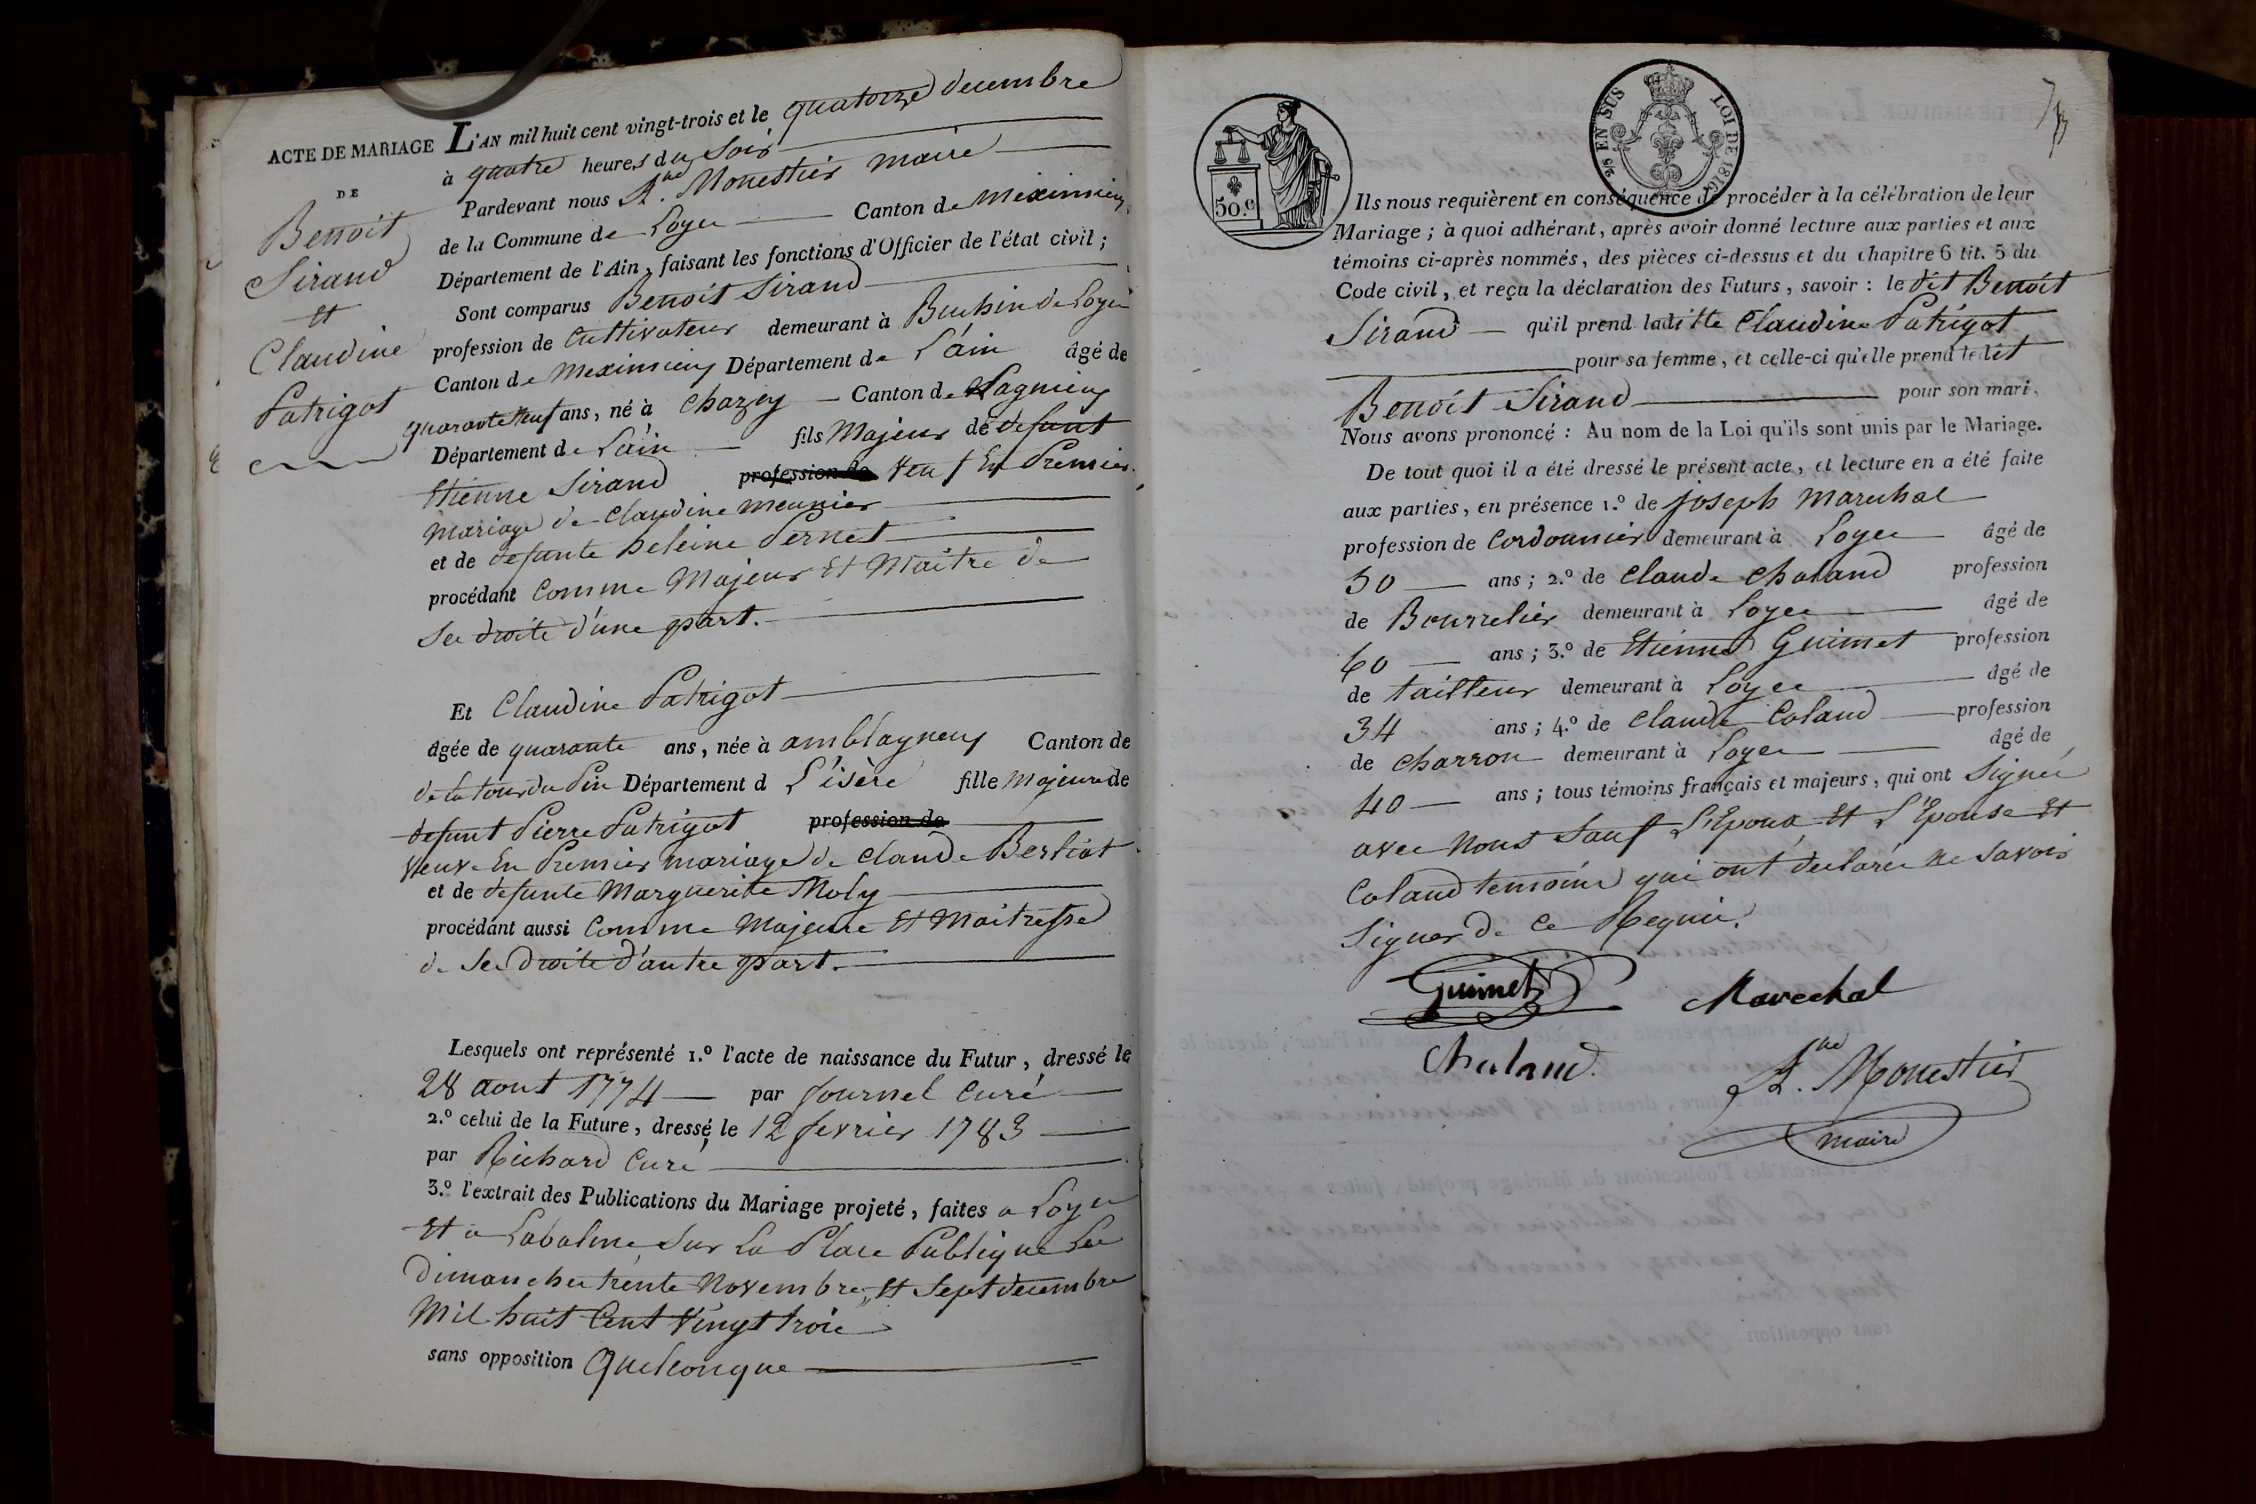 ACTE DE MARIAGE
DE
Benoit
Sirand
et
Claudine
Patrigot
L'AN mil huit cent vingt-trois et le quatorze decembre
à quatre heures du soir
Pardevant nous A.né Monestier maire
de la Commune de Loyes Canton de Meximieux
Département de l'Ain, faisant les fonctions d'Officier de l'état civil ;
Sont comparus Benoit Sirand
profession de Cultivateur demeurant à Buchin de Loyes
Canton de Meximieux Département de L'ain âgé de
quarante neuf ans, né à Chazey Canton de Lagnieux
Département de L'ain fils Majeur de defunt
Etienne Sirand profession de Veuf En Premier
mariage de Claudine Meunier
et de defunte heleine Pernet
procédant Comme Majeur Et Maitre de
ses droits d'une part.
Et Claudine Patrigot
âgée de quarante ans, née à amblagneux Canton de
de la tour du Pin Département d L'isère fille Majeure de
defunt Pierre Patrigot profession de
Veuve En Premier mariage de Claude Bertiat
et de defunte Marguerite Moly
procédant aussi Comme Majeure Et Maitresse
de ses droits d'autre part.
Lesquels ont représenté 1.º l'acte de naissance du Futur, dressé le
28 aout 1774 par Journel Curé
2.º celui de la Future, dressé le 12 fevrier 1783
par Richard Curé
3.º l'extrait des Publications du Mariage projeté, faites a Loyes
Et a Labalme sur La Place Publique Les
dimanches trente Novembre Et Sept decembre
Mil huit Cent Vingt trois
sans opposition Quelconque
50.c
28 EN SUS LOI DE 1816
Ils nous requièrent en conséquence de procéder à la célébration de leur
Mariage ; à quoi adhérant, après avoir donné lecture aux parties et aux
témoins ci-après nommés, des pièces ci-dessus et du chapitre 6 tit. 5 du
Code civil, et reçu la déclaration des Futurs, savoir : le dit Benoit
Sirand qu'il prend laditte Claudine Patrigot
pour sa femme, et celle-ci qu'elle prend ledit
Benoit Sirand pour son mari.
Nous avons prononcé : Au nom de la Loi qu'ils sont unis par le Mariage.
De tout quoi il a été dressé le présent acte, et lecture en a été faite
aux parties, en présence 1.º de Joseph Marechal
profession de Cordonnier demeurant à Loyes âgé de
50 ans ; 2.º de Claude Chaland profession
de Bourrelier demeurant à Loyes âgé de
60 ans ; 3.º de Etienne Guimet profession
de tailleur demeurant à Loyes âgé de
34 ans ; 4.º de Claude Coland profession
de Charron demeurant à Loyes âgé de
40 ans ; tous témoins français et majeurs, qui ont Signés
avec Nous Sauf L'Epoux Et L'Epouse Et
Coland temoins qui ont déclarés ne savoir
Signer de ce Requis.
Guimet Marechal
Chaland. A.né Monestier
maire